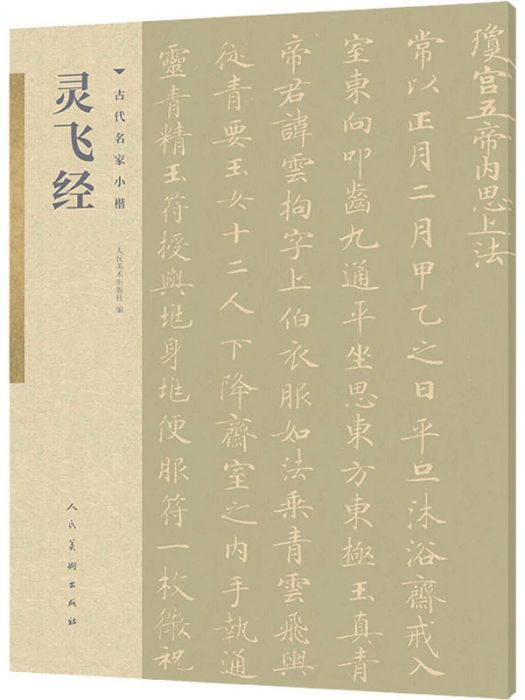 灵飞经
古代名家小楷
人民美术出版社 编
人民美術出版社
瓊宫五帝内思上法
常以正月二月甲乙之日平旦沐浴齋戒入
室東向叩齒九通平坐思東方東極玉真青
帝君諱雲拘字上伯衣服如法乘青雲飛輿
從青要玉女十二人下降齋室之内手執通
靈青精玉符授與垗身垗便服符一枚微祝